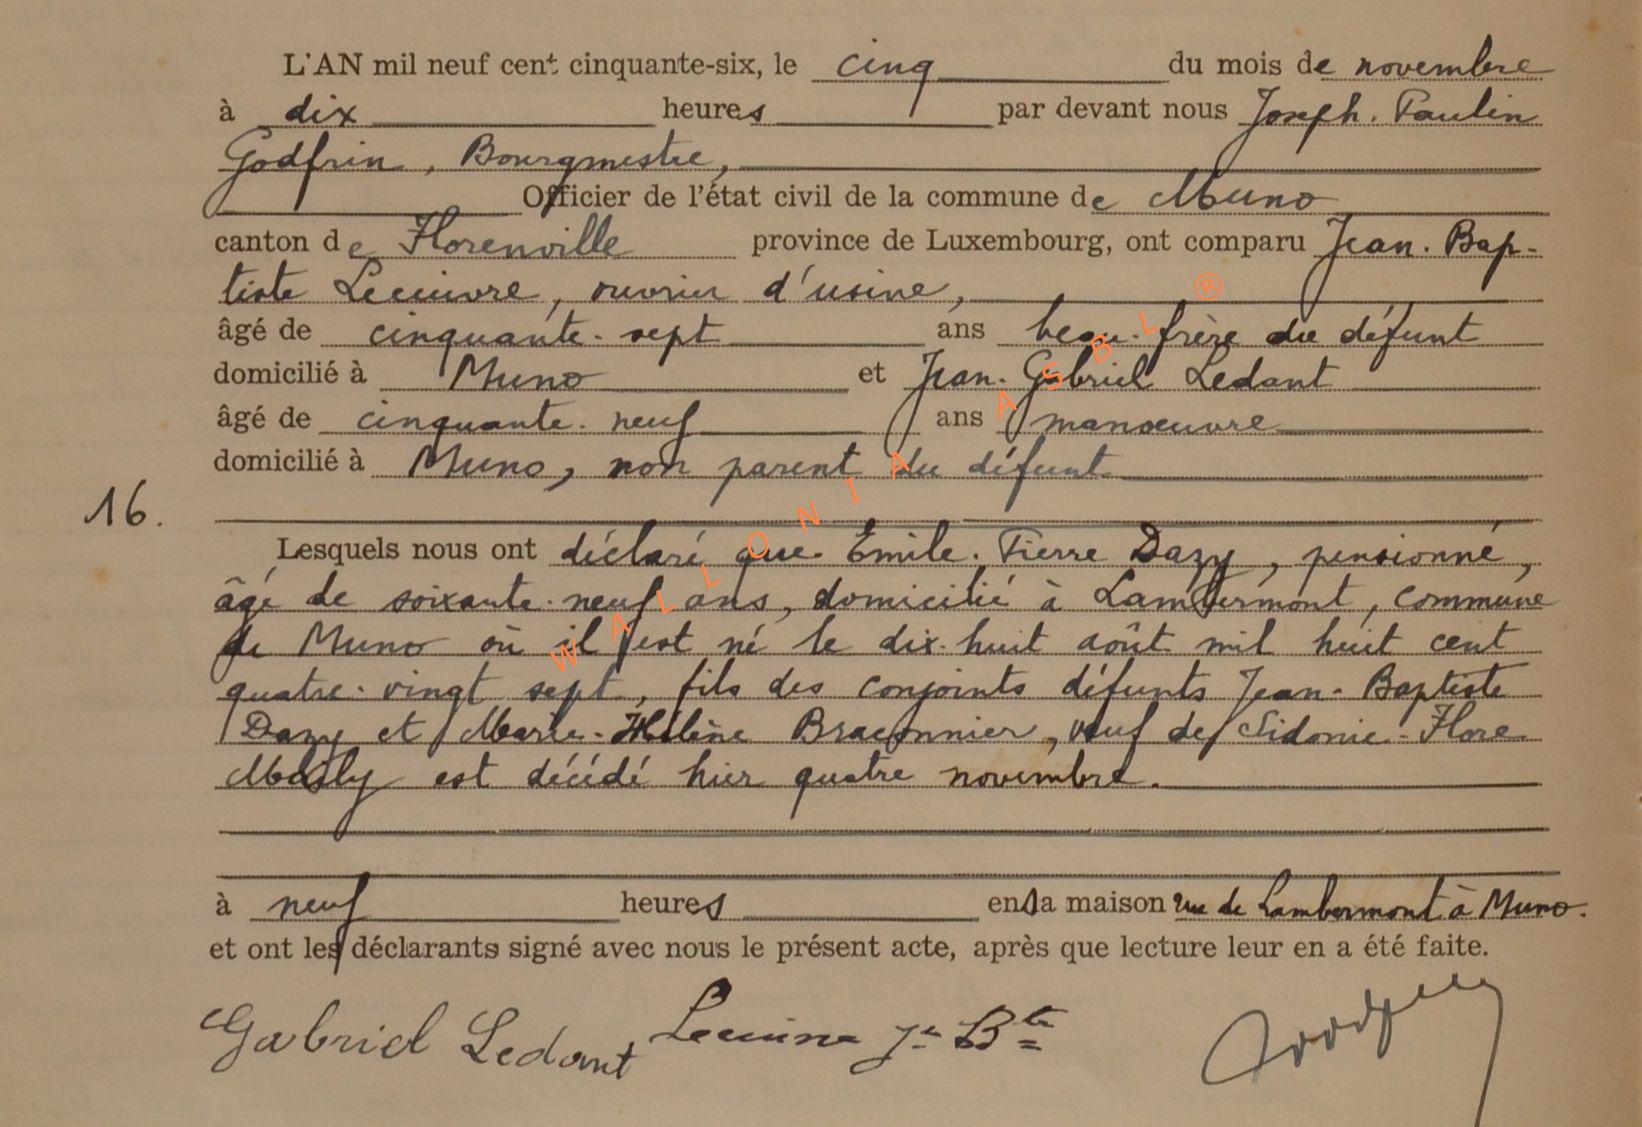 L'AN mil neuf cent cinquante-six, le cinq du mois de novembre
à dix heures par devant nous Joseph. Paulin
Godfrin, Bourgmestre,
Officier de l'état civil de la commune de Muno
canton de Florenville province de Luxembourg, ont comparu Jean-Bap-
tiste Lecuivre, ouvrier d'usine,
âgé de cinquante-sept ans beau-frère du défunt
domicilié à Muno et Jean-Gabriel Ledant
âgé de cinquante-neuf ans manœuvre
domicilié à Muno, non parent du défunt
16.
Lesquels nous ont déclaré que Emile-Pierre Dazy, pensionné,
âgé de soixante-neuf ans, domicilié à Lambermont, commune
de Muno où il est né le dix-huit août mil huit cent
quatre-vingt sept, fils des conjoints défunts Jean-Baptiste
Dazy et Marie-Hélène Braconnier, veuf de Sidonie-Flore
Masly est décédé hier quatre novembre.
à neuf heures en la maison rue de Lambermont à Muno.
et ont les déclarants signé avec nous le présent acte, après que lecture leur en a été faite.
Gabriel Ledant Lecuivre Jn Bte
WALLONIA ASBL ®